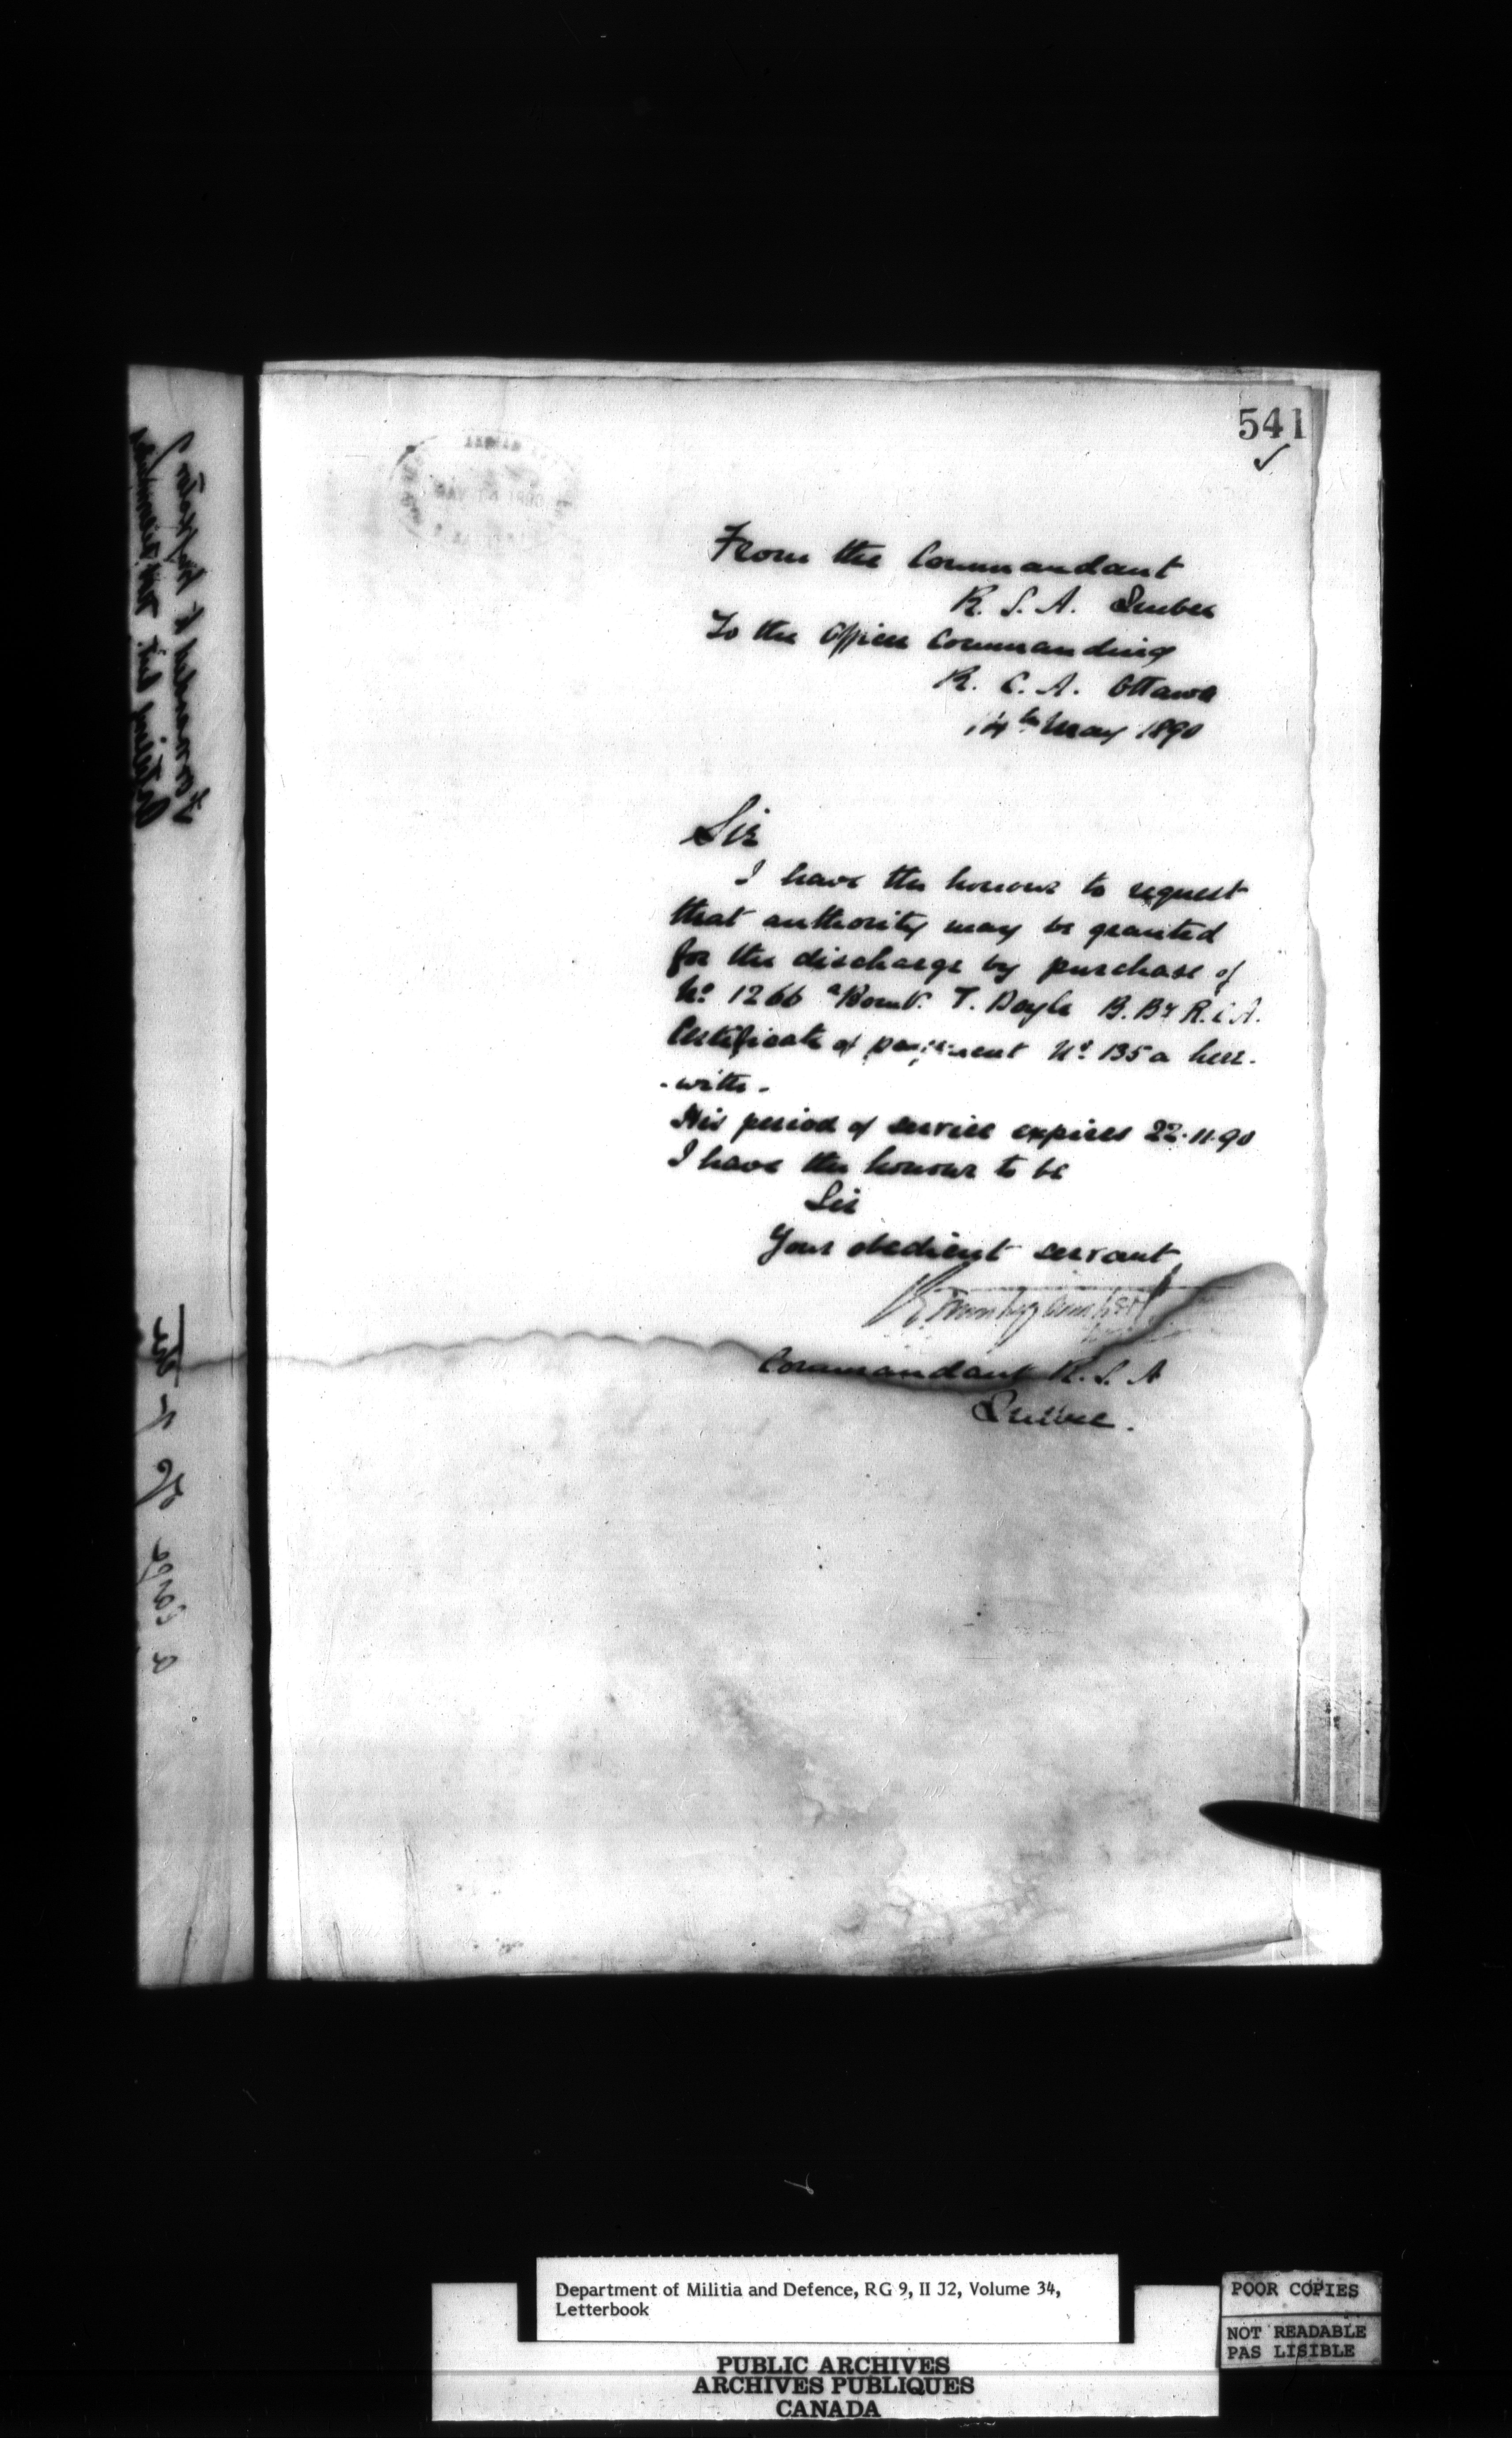 541
From the Commandant
R. S. A. Quebec
To the Officer Commanding
R. C. A. Ottawa
14th May 1890
Sir
I have the honour to request
that authority may be granted
for the discharge by purchase of
No 1266 a/Bombr. T. Doyle B. By R.C.A.
Certificate of payment No. 135a here-
-with-
His period of service expires 22.11.90
I have the honour to be
Sir
Your obedient servant
Commandant R. S. A
Quebec.
Department of Militia and Defence, RG 9, II J2, Volume 34,
Letterbook
PUBLIC ARCHIVES
ARCHIVES PUBLIQUES
CANADA
POOR COPIES
NOT READABLE
PAS LISIBLE